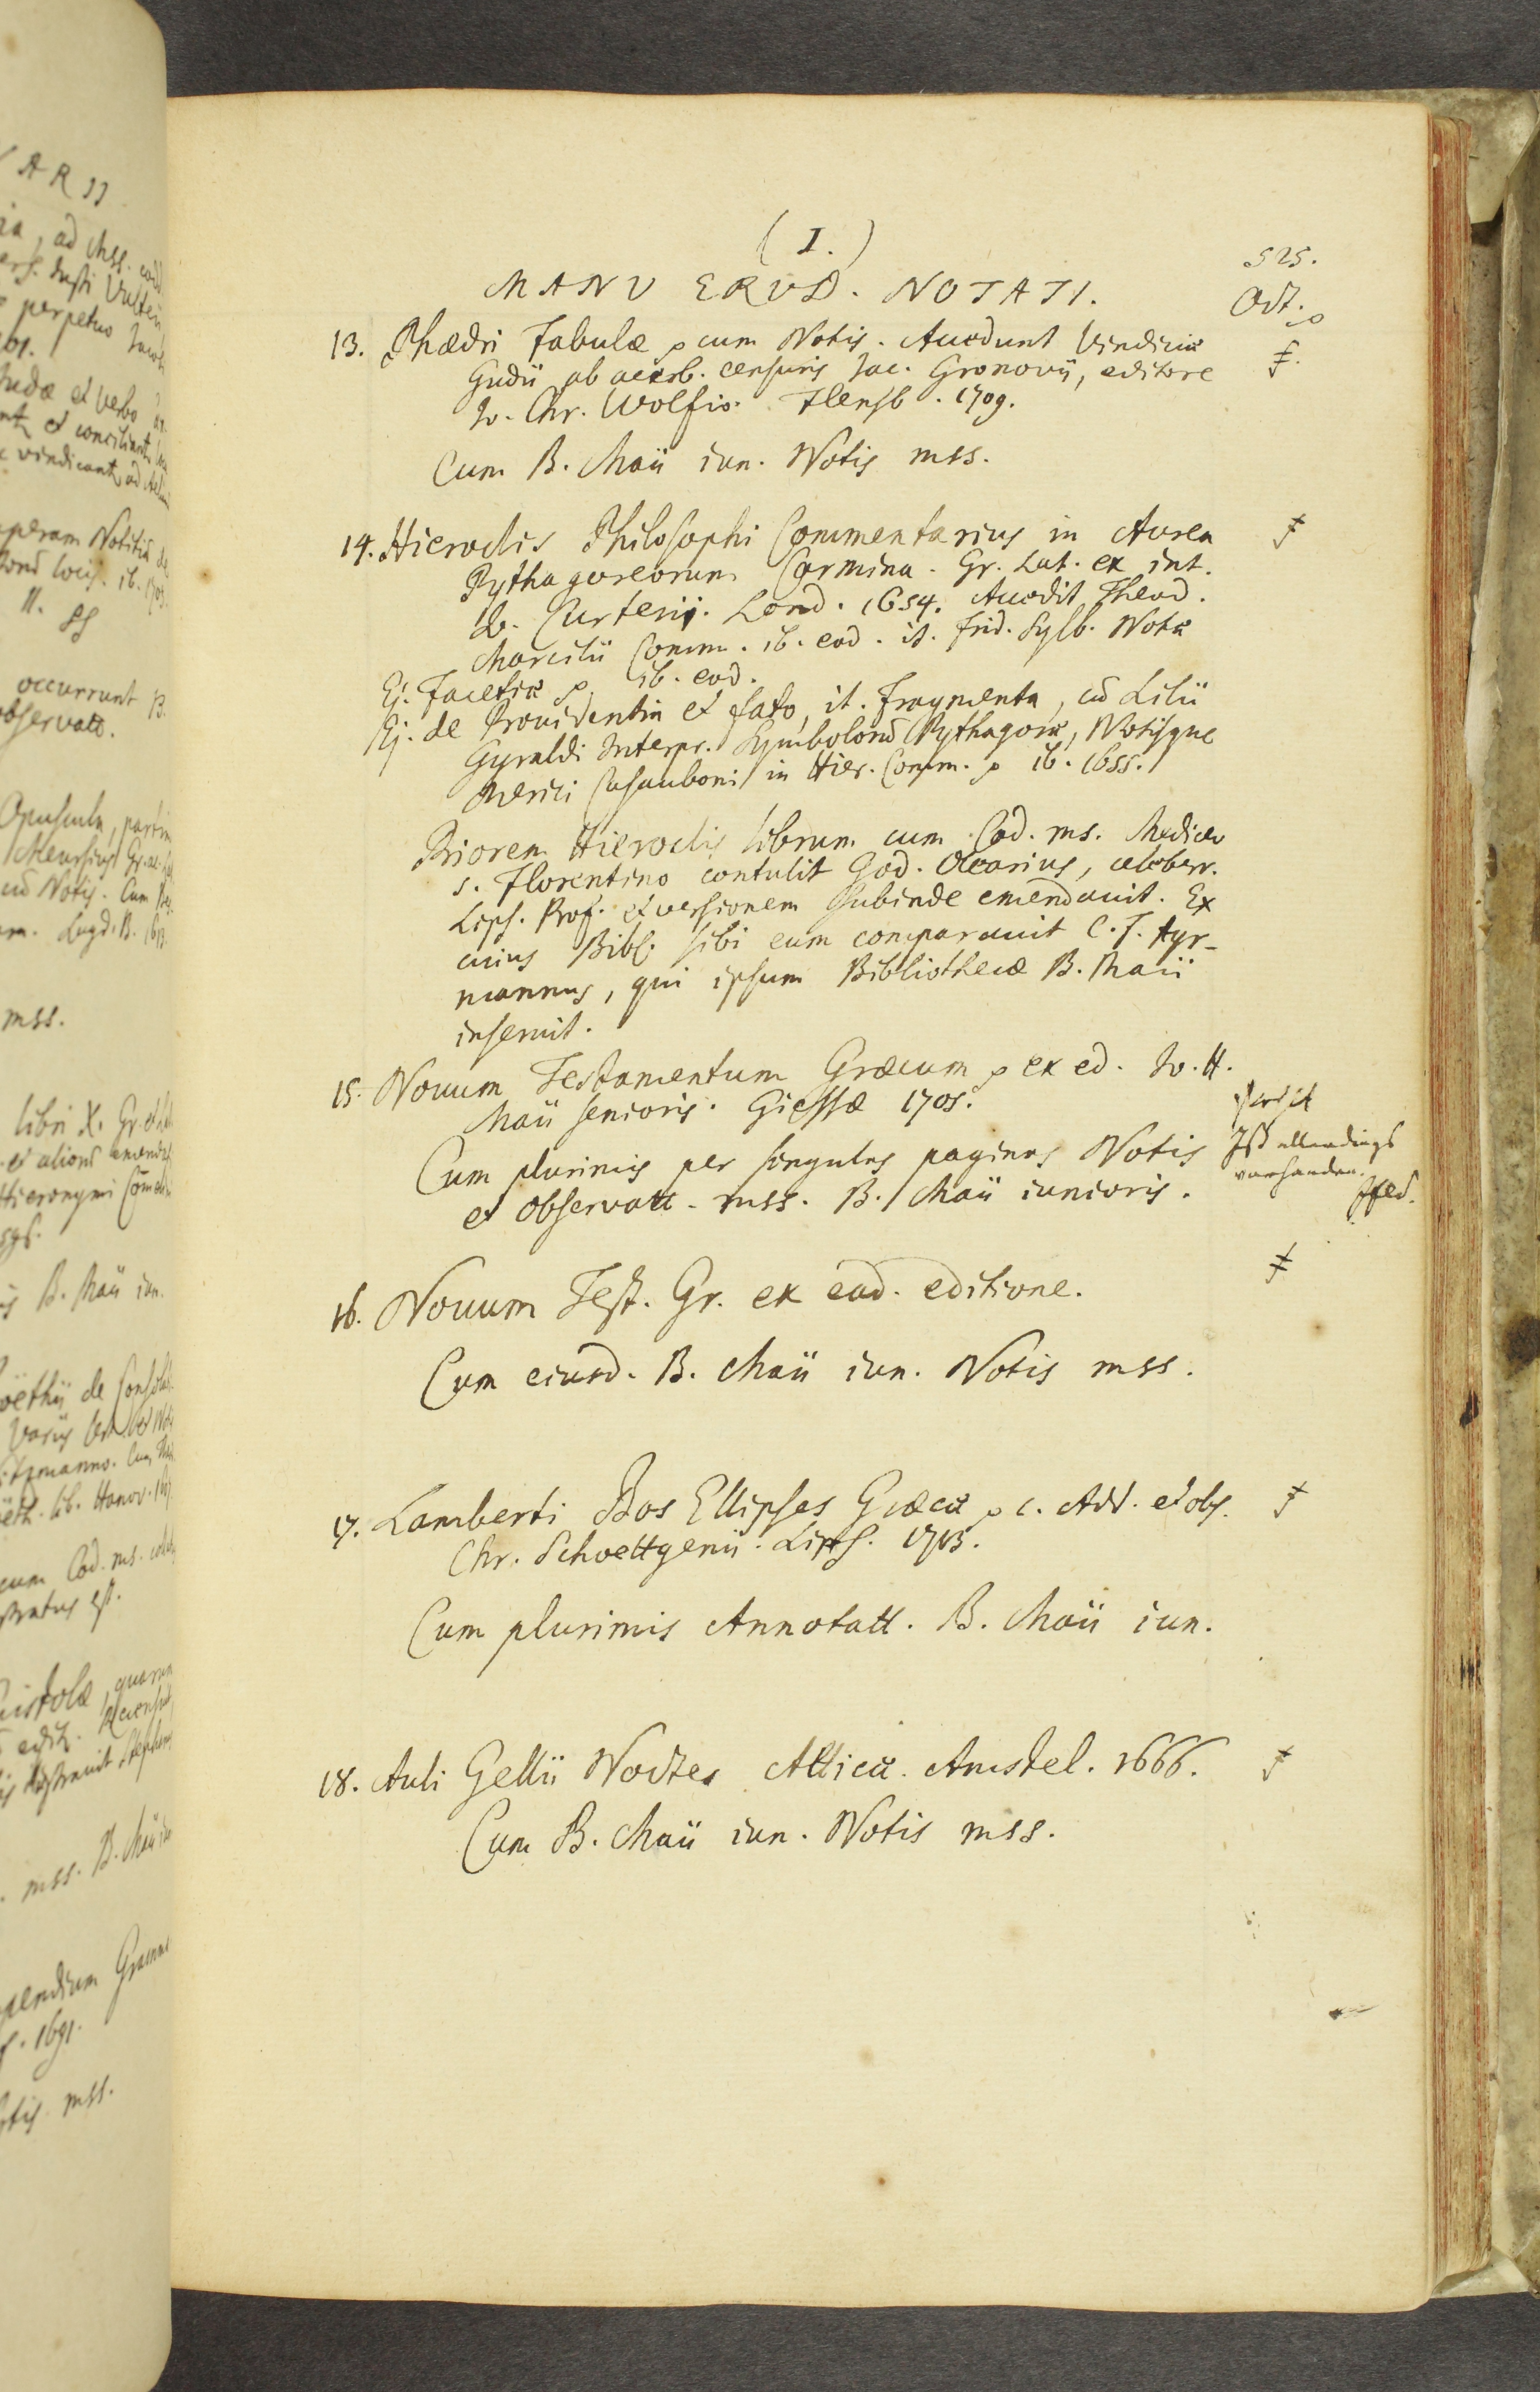 (I.)
525.
MANV ERVD. NOTATI.
Oct.
13. Phædri Fabulæ cum Notis. Accedunt Vindiciæ
Gudii ab acerb. censuris Jac. Gronovii, editore
Jo. Chr. Wolfio. Flensb. 1709.
Cum B. Maii iun. Notis mss.
14. Hieroclis Philosophi Commentarius in Aurea
Pythagoreorum Carmina. Gr. Lat. ex int.
Jo. Curterii. Lond. 1654. Accedit Theod.
Marcilii Comm. ib. eod. it. Frid. Sylb. Notæ
Ej. Facetiæ ib. eod.
Ej. de Providentia et fato, it. fragmenta, cū Lilii
Gyraldi Interpr. Symbolorū Pythagoræ, Notisque
Merici Casauboni in Hier. Comm. ib. 1655.
Priorem Hieroclis librum cum Cod. ms. Mediceo
s. Florentino contulit God. Olearius, celeberr.
Lips. Prof. et versionem subinde emendauit. Ex
cuius Bibl. sibi eum comparauit C. F. Ayr-
mannus, qui ipsum Bibliothecæ B. Maii
inseruit.
15. Nouum Testamentum Græcum ex ed. Jo. H.
Maii senioris. Giessæ 1705.
Cum plurimis per singulas paginas Notis
et observatt. mss. B. Maii iunioris.
Ist allerdings
vorhanden.
16. Nouum Test. Gr. ex ead. editione.
Cum eiusd. B. Maii iun. Notis mss.
17. Lamberti Bos Ellipses Græcæ c. Add. et obs.
Chr. Schoettgenii. Lips. 1713.
Cum plurimis Annotatt. B. Maii iun.
18. Auli Gellii Noctes Atticæ. Amstel. 1666.
Cum B. Maii iun. Notis mss.